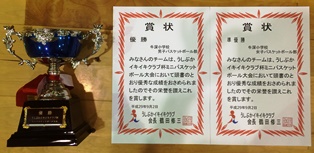 賞状
優勝
年深小学校
男子バスケットボール部
みなさんのチームは、うしぶか
イキイキクラブ杯ミニバスケット
ボール大会において頭書のと
おり優秀な成績をおさめられま
したのでその栄誉を讃えこれ
を賞します。
平成29年9月2日
うしぶかイキイキクラブ
会長 鶴田修三
賞状
準優勝
年深小学校
女子バスケットボール部
みなさんのチームは、うしぶか
イキイキクラブ杯ミニバスケット
ボール大会において頭書のと
おり優秀な成績をおさめられま
したのでその栄誉を讃えこれ
を賞します。
平成29年9月2日
うしぶかイキイキクラブ
会長 鶴田修三